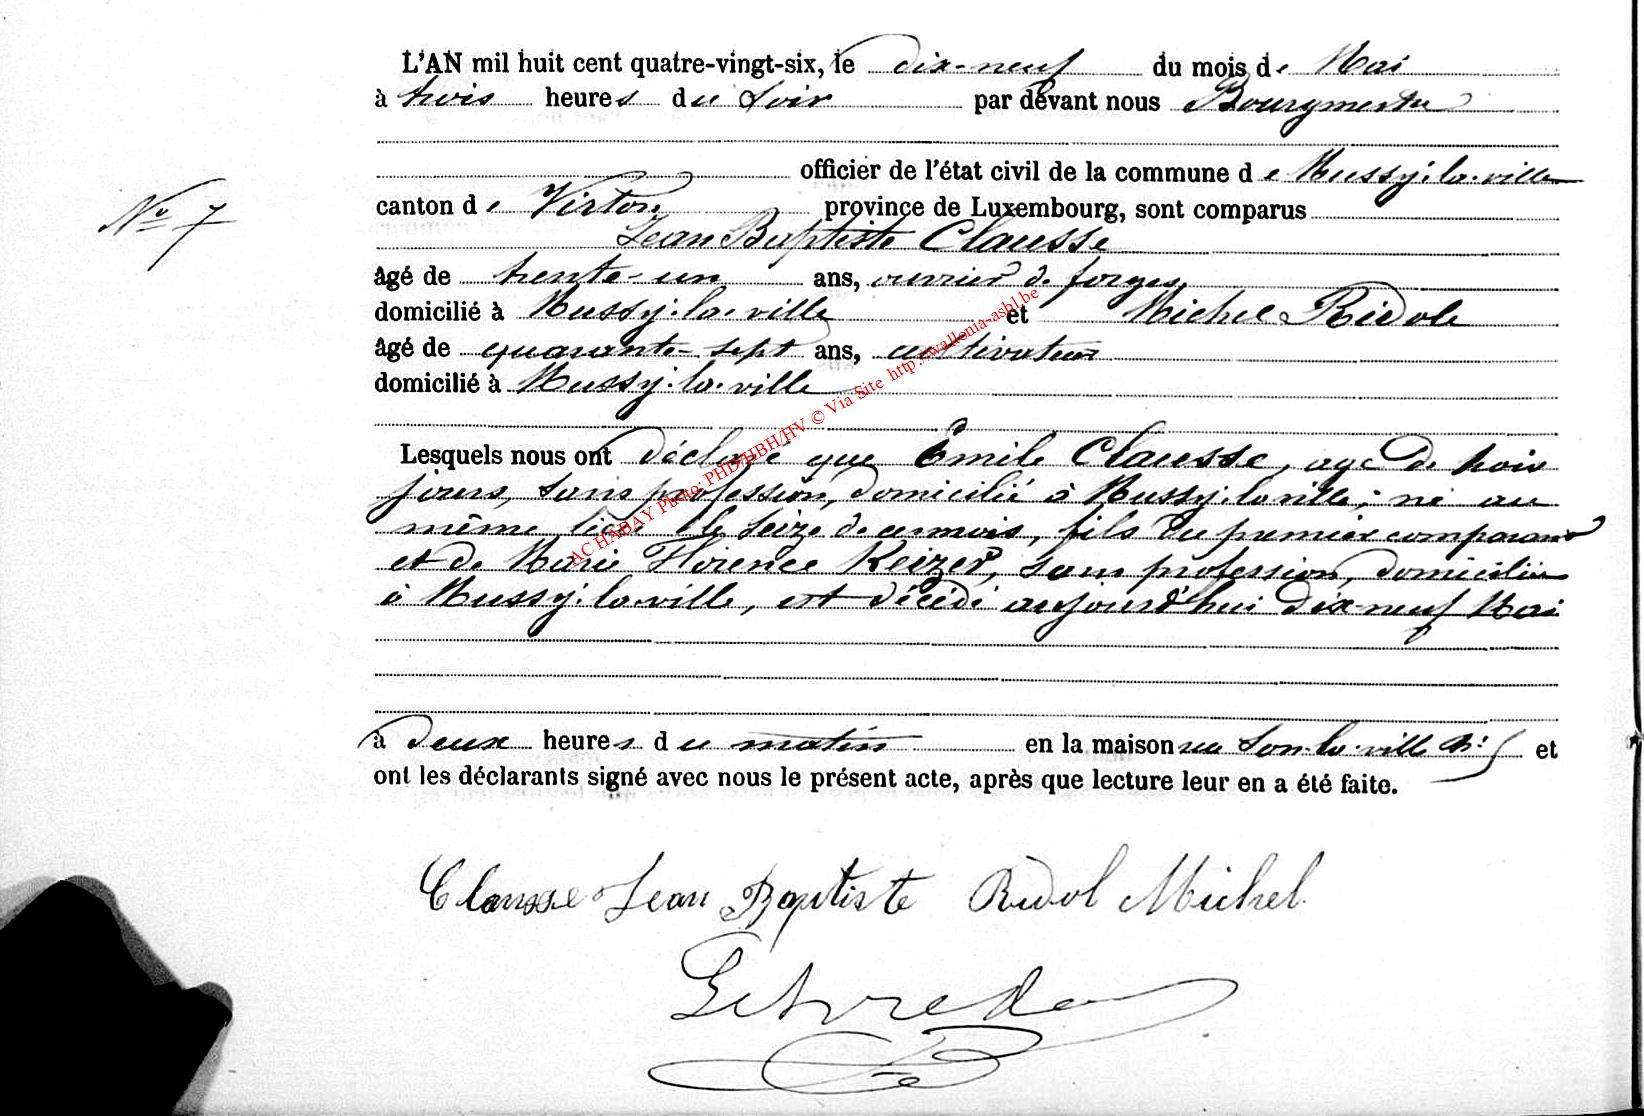 L'AN mil huit cent quatre-vingt-six, le dix-neuf du mois de Mai
à trois heures du soir par devant nous Bourgmestre
officier de l'état civil de la commune de Mussy-la-ville
N° 7
canton de Virton province de Luxembourg, sont comparus
Jean Baptiste Clausse
âgé de trente-un ans, ouvrier de forges
domicilié à Mussy-la-ville et Michel Ridole
âgé de quarante-sept ans, cultivateur
domicilié à Mussy-la-ville
AC HABAY Photo: PHD/HBH/HV © Via Site http://wallonia-asbl.be
Lesquels nous ont déclaré que Emile Clausse, agé de trois
jours, sans profession, domicilié à Mussy-la-ville, né au
même lieu le seize de ce mois, fils du premier comparant
et de Marie Florence Keizer, sans profession, domiciliée
à Mussy-la-ville, est décédé aujourd'hui dix-neuf Mai
à deux heures du matin en la maison et
ont les déclarants signé avec nous le présent acte, après que lecture leur en a été faite.
Clausse Jean Baptiste Ridol Michel